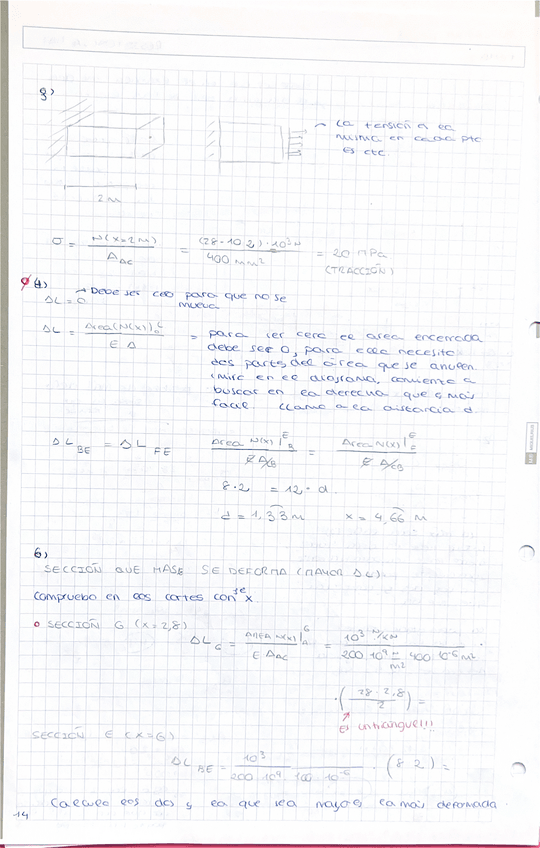 3)
La tensión es la
misma en cada pto
es cte.
2 M
σ = N(x=2M) / A_AC = (28-10·2)·10³ N / 400 mm² = 20 MPa
(TRACCIÓN)
4)
→ Debe ser cero para que no se
mueva
ΔL = 0
ΔL = Area(N(x)) / E A = para ser cero el area encerrada
debe ser 0, para ello necesito
dos partes del área que se anulen.
(mira en el diagrama, comienza a
buscar en la derecha que es más
fácil llamo a la distancia d.
ΔL_BE = ΔL_FE Area N(x)|_B^E / E A_CB = Area N(x)| / E A_CB
8·2 = 12· d
d = 1,33 M x = 4,66 M
6)
SECCIÓN QUE MAS SE DEFORMA (MAYOR ΔL)
Compruebo en los cortes con eje x
SECCIÓN G (x = 2,8)
ΔL_G = AREA N(x)|_A^G / E A_AC = 10³ N/kN / 200·10⁹ N/m² 400·10⁻⁶ m² ·
· (28·2,8 / 2) =
Es un triángulo!!!
SECCIÓN E (x=6)
ΔL_BE = 10³ / 200·10⁹ 100·10⁻⁶ · (8·2) =
Calculo los dos y la que sea mayor es la más deformada.
14